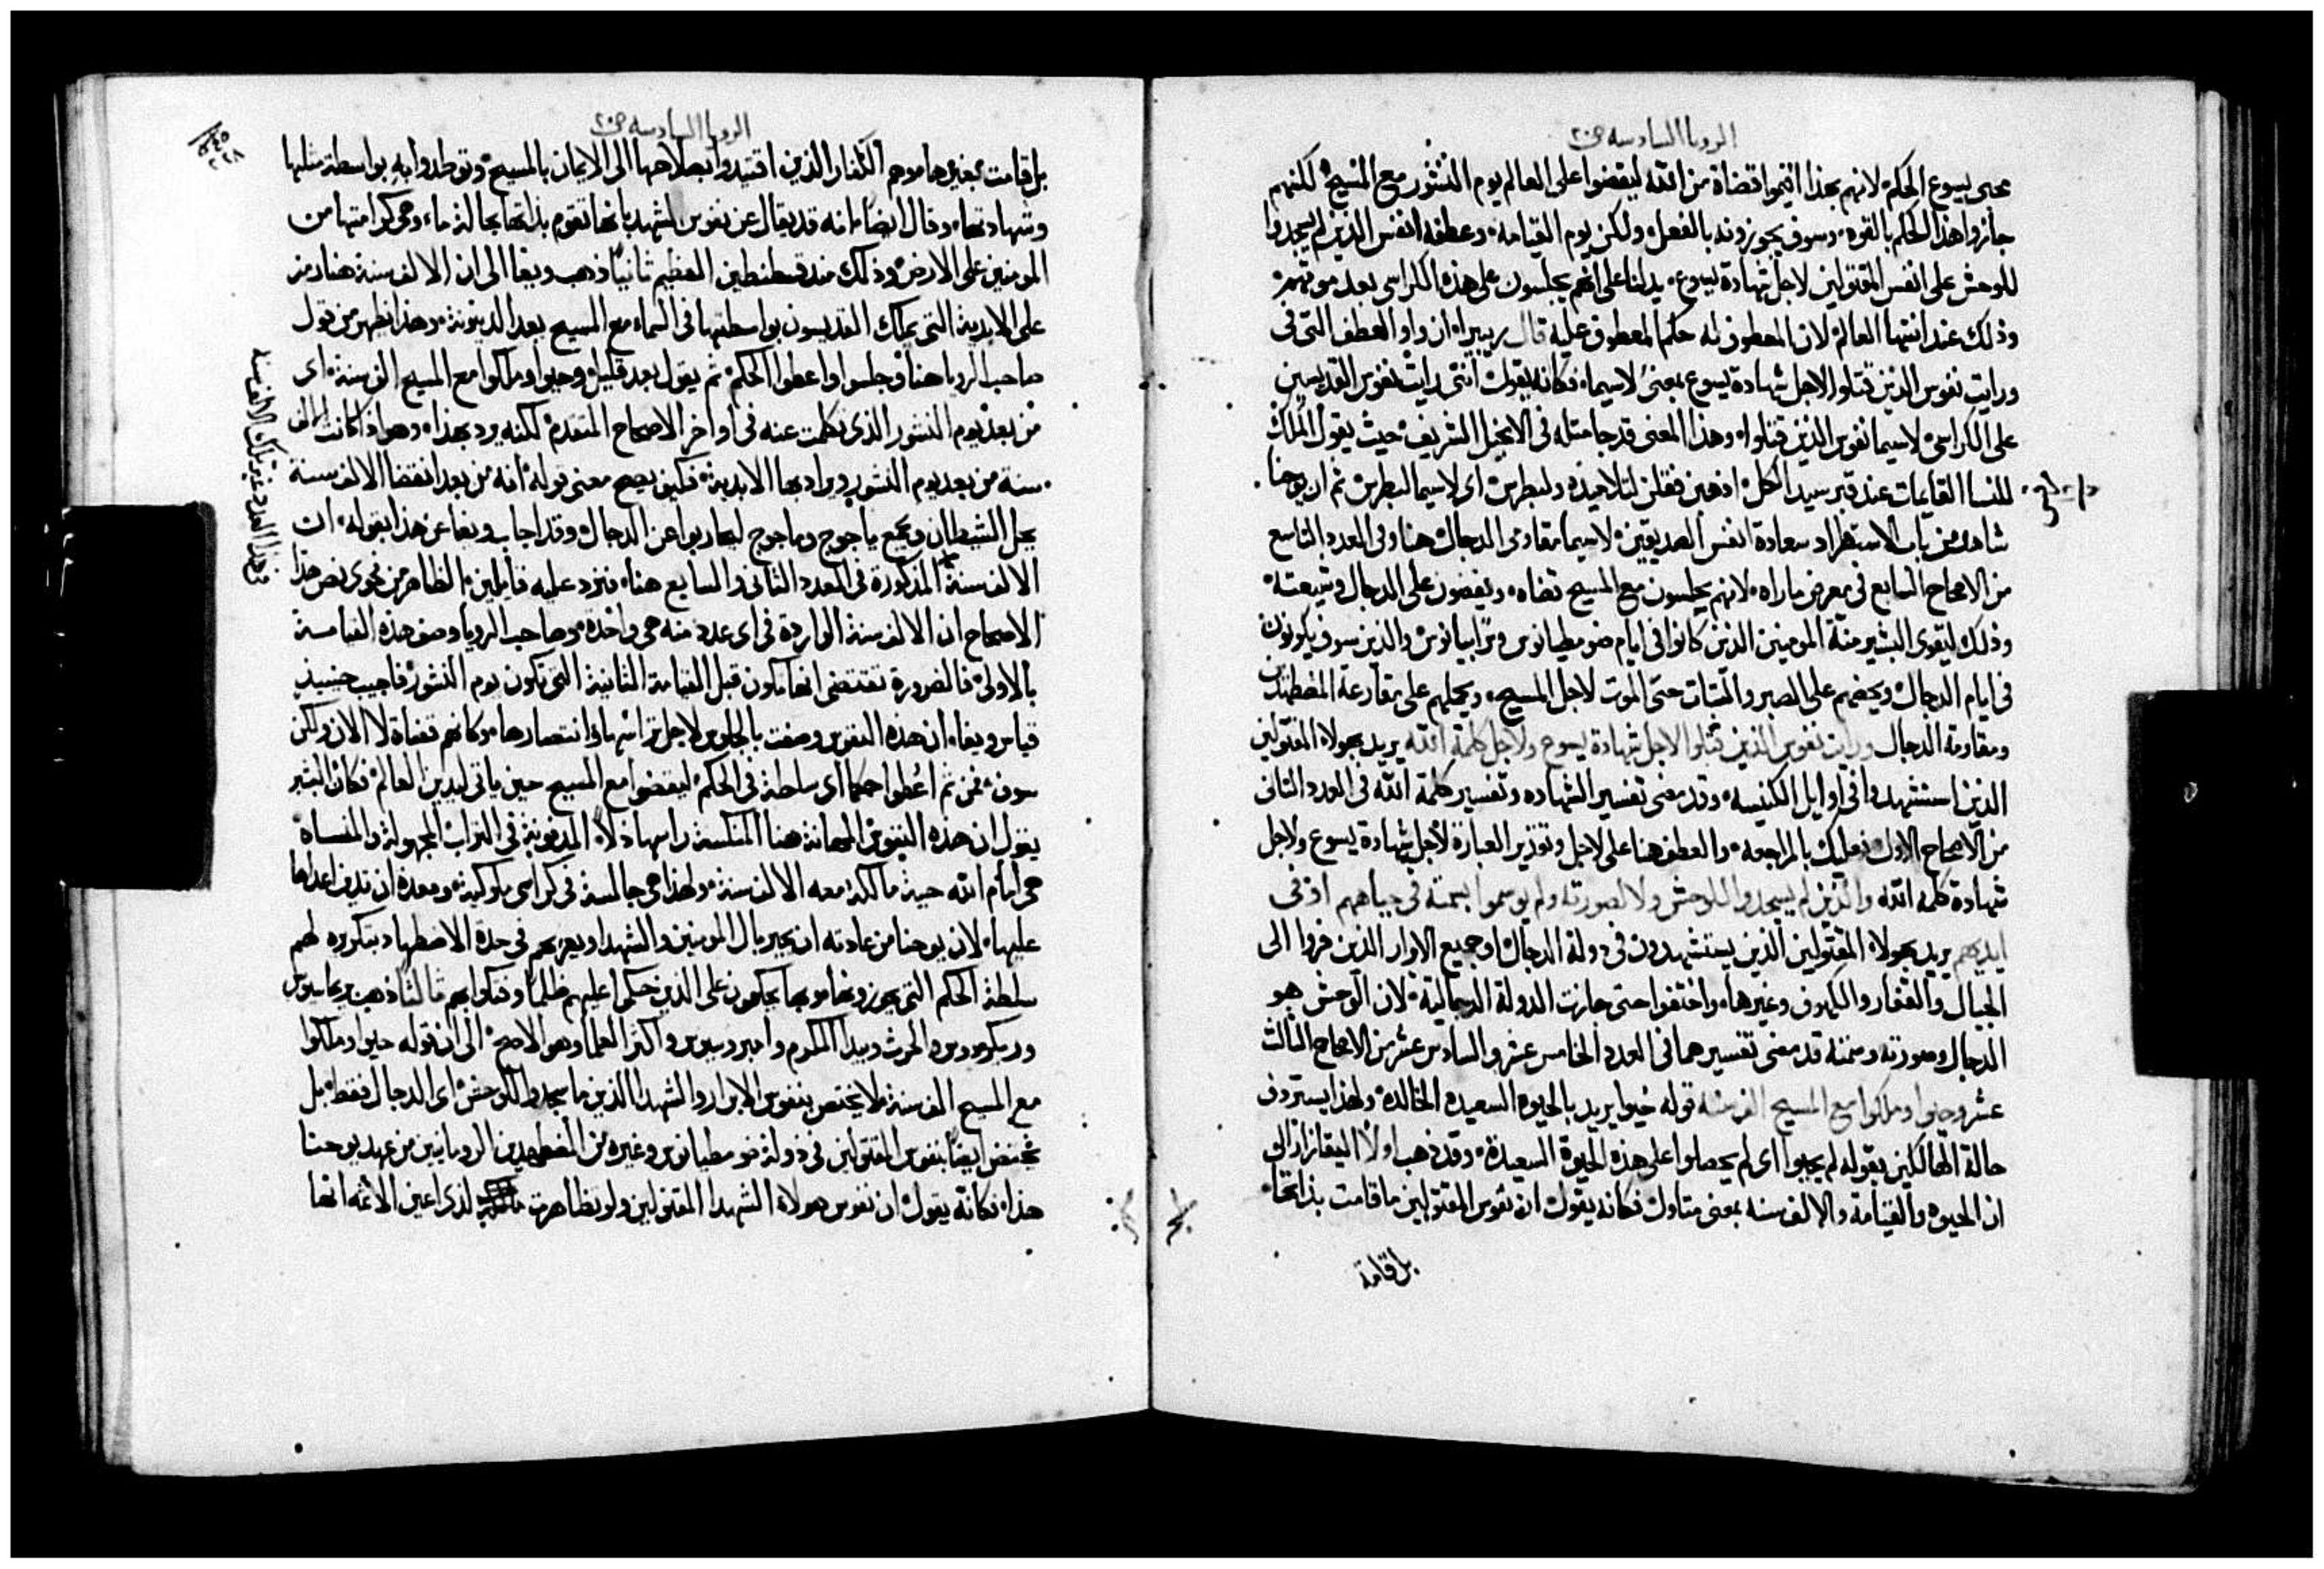 الرويا السادسه ص٢٠
محى يسوع الحكم لانهم بهذا اقيموا قضاة من الله ليقضوا على العالم يوم النشور مع المسيح لكنهم
جازوا هذا الحكم بالقوه وسوف يجوزونه بالفعل ولكن يوم القيامه وعطفه انفس الذين لم يسجدوا
للوحش على انفس المقتولين لاجل شهادة يسوع يدلنا على انهم يجلسون على هذه الكراسى بعد موتهم
وذلك عند انتها العالم لان المعطوف له حكم المعطوف عليه قال ريبيرا ان واو العطف التى فى
ورايت نفوس الذين قتلوا لاجل شهادة يسوع بمعنى لاسيما فكانه يقول اننى رايت نفوس القديسين
على الكراسى لاسيما نفوس الذين قتلوا وهذا المعنى قد جا مثله فى الانجيل الشريف حيث يقول الملاك
للنسا القايمات عند قبر سيد الكل اذهبن فقلن لتلاميذه ولبطرس اى لاسيما لبطرس ثم ان يوحنا
شاهد من باب الاستطراد سعادة انفس الصديقين لاسيما مقاومى الدجال هنا وفى العدد التاسع
من الاصحاح السابع فى معرض ماراه لانهم يجلسون مع المسيح قضاه ويقضون على الدجال وشيعته
وذلك ليقوى البشير منة المومنين الذين كانوا فى ايام ضوميطيانوس وترابيانوس والذين سوف يكونون
فى ايام الدجال ويحضهم على الصبر والثبات حتى الموت لاجل المسيح ويحملهم على مقارعة المضطهدين
ومقاومة الدجال ورايت نفوس الذين قتلوا لاجل شهادة يسوع ولاجل كلمة الله يريد بهولاء المقتولين
الذين استشهدوا فى اوايل الكنيسه وقد مضى تفسير الشهاده وتفسير كلمة الله فى العدد الثانى
من الاصحاح الاول فعليك بالمراجعه والعطف هنا على لاجل وتقدير العبارة لاجل شهادة يسوع ولاجل
شهادة كلمة الله والذين لم يسجدوا للوحش ولا لصورته ولم يوسموا بسمته فى جباههم او فى
ايديهم يريد بهولاء المقتولين الذين يستشهدون فى دولة الدجال او جميع الابرار الذين فروا الى
الجبال والقفار والكهوف وغيرها واختفوا حتى جازت الدولة الدجالية لان الوحش هو
الدجال وصورته وسمته قد مضى تفسيرهما فى العدد الخامس عشر والسادس عشر من الاصحاح الثالث
عشر وحيوا وملكوا مع المسيح الف سنه قوله حيوا يريد بالحيوة السعيده الخالدة ولهذا يستردف
حالة الهالكين بقوله لم يحيوا اى لم يحصلوا على هذه الحيوة السعيدة وقد ذهب اولا اليقازار الى
ان الحيوه والقيامة والالف سنه بمعنى متاول فكانه يقول ان نفوس المقتولين ما قامت بذاتها
بل قامة
الرويا السادسه ص٢٠
بل قامت بغيرها وهم الكفار الذين اقتيدوا بصلاحها الى الايمان بالمسيح وتوطدوا به بواسطة مثلها
وشهادتها وقال ايضا انه قد يقال عن نفوس الشهدا انها تقوم بذاتها بحالة ما وهى كرامتها من
المومنين على الارض وذلك منذ قسطنطين العظيم ثانيا ذهب ويغا الى ان الالف سنة هنا رمز
على الابدية التى يملك القديسون بواسطتها فى السماء مع المسيح بعد الدينونة وهذا يظهر من قول
صاحب الرويا هنا وجلسوا واعطوا الحكم ثم يقول بعد قليل وحيوا وملكوا مع المسيح الف سنة اى
من بعد يوم النشور الذى تكلمت عنه فى اواخر الاصحاح المتقدم لكنه يرد بهذا وهو اذا كانت الالف
سنة من بعد يوم النشور ويراد بها الابدية فكيف يصح معنى قوله انه من بعد انقضا الالف سنة
يحل الشيطان ويجمع ياجوج وماجوج ليحاربوا عن الدجال وقد اجاب ويغا عن هذا بقوله ان
الالف سنة المذكورة فى العدد الثانى والسابع هنا فنرد عليه قايلين الظاهر من فحوى نص هذا
الاصحاح ان الالف سنة الواردة فى اى عدد منه هى واحده وصاحب الرويا وصف هذه القيامسة
بالاولى فالضرورة تقتضى انها تكون قبل القيامة الثانية التى تكون يوم النشور فاجيب حينيذ
قياس ويغا ان هذه النفوس وصفت بالجلوس لاجل تراسها وانتصارها وكانهم قضاة لا الان ولكن
سوف فمن ثم اعطوا حكما اى سلطة فى الحكم ليقضوا مع المسيح حين ياتى ليدين العالم فكان البشير
يقول ان هذه النفوس المهانة هنا المنكسة راسها ذلا المدفونة فى التراب المجهولة والمنساة
هى امام الله حية مالكة معه الالف سنة ولهذا هى جالسة فى كراسى ملوكية ومعدة ان تدين اعداها
عليها لان يوحنا من عادته ان يجبر بال المومنين والشهدا ويعزيهم فى حدة الاضطهاد بتكريره لهم
سلطة الحكم التى يجوزونها وبها يحكمون على الذين حكموا عليهم ظلما وقتلوهم ثالثا ذهب
مع المسيح الف سنة لا يختص بنفوس الابرار والشهدا الذين ما سجدوا للوحش اى الدجال فقط بل
يختص ايضا بنفوس المقتولين فى دولة ضوميطيانوس وغيره من المضطهدين الرومانيين من عهد يوحنا
هذا فكانه يقول ان نفوس هولاء الشهدا المقتولين ولو تظاهرت لذى اعين الائمه انها